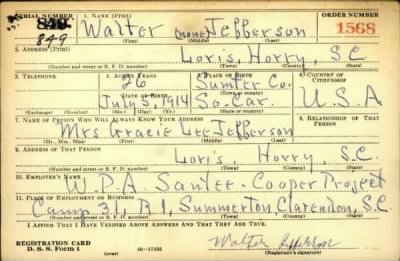 SERIAL NUMBER 1. NAME (Print) ORDER NUMBER
849 Walter (none) Jefferson 1568
849 (First) (Middle) (Last)
2. ADDRESS (Print)
Loris, Horry, S.C.
(Number and street or R. F. D. number) (Town) (County) (State)
3. TELEPHONE 4. AGE IN YEARS 5. PLACE OF BIRTH 6. COUNTRY OF CITIZENSHIP
26 Sumter Co.
DATE OF BIRTH (Town or county)
July 5, 1914 So. Car. U.S.A
(Exchange) (Number) (Mo.) (Day) (Yr.) (State or country)
7. NAME OF PERSON WHO WILL ALWAYS KNOW YOUR ADDRESS 8. RELATIONSHIP OF THAT PERSON
Mrs Gracie Lee Jefferson
(Mr., Mrs., Miss) (First) (Middle) (Last)
9. ADDRESS OF THAT PERSON
Loris, Horry, S.C.
(Number and street or R. F. D. number) (Town) (County) (State)
10. EMPLOYER'S NAME
W.P.A Santee-Cooper Project
11. PLACE OF EMPLOYMENT OR BUSINESS
Camp 31, R1, Summerton, Clarendon, S.C.
(Number and street or R. F. D. number) (Town) (County) (State)
I AFFIRM THAT I HAVE VERIFIED ABOVE ANSWERS AND THAT THEY ARE TRUE.
REGISTRATION CARD
D. S. S. Form 1 16—17105 Walter Jefferson
(Registrant's signature)